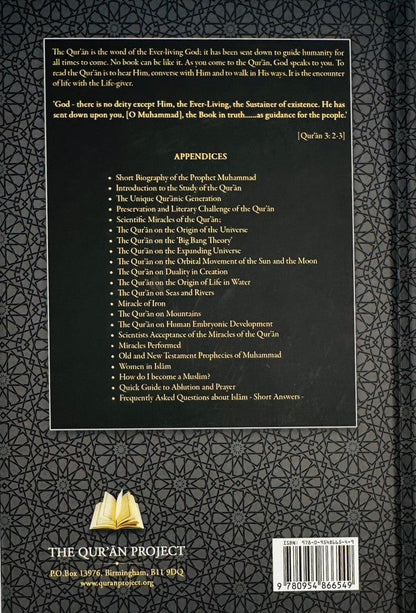 The Qur'ān is the word of the Ever-living God; it has been sent down to guide humanity for
all times to come. No book can be like it. As you come to the Qur'ān, God speaks to you. To
read the Qur'ān is to hear Him, converse with Him and to walk in His ways. It is the encounter
of life with the Life-giver.
'God - there is no deity except Him, the Ever-Living, the Sustainer of existence. He has
sent down upon you, [O Muhammad], the Book in truth......as guidance for the people.'
[Qur'ān 3: 2-3]
APPENDICES
• Short Biography of the Prophet Muhammad
• Introduction to the Study of the Qur'ān
• The Unique Qur'ānic Generation
• Preservation and Literary Challenge of the Qur'ān
• Scientific Miracles of the Qur'ān;
• The Qur'ān on the Origin of the Universe
• The Qur'ān on the 'Big Bang Theory'
• The Qur'ān on the Expanding Universe
• The Qur'ān on the Orbital Movement of the Sun and the Moon
• The Qur'ān on Duality in Creation
• The Qur'ān on the Origin of Life in Water
• The Qur'ān on Seas and Rivers
• Miracle of Iron
• The Qur'ān on Mountains
• The Qur'ān on Human Embryonic Development
• Scientists Acceptance of the Miracles of the Qur'ān
• Miracles Performed
• Old and New Testament Prophecies of Muhammad
• Women in Islām
• How do I become a Muslim?
• Quick Guide to Ablution and Prayer
• Frequently Asked Questions about Islām - Short Answers -
THE QUR'ĀN PROJECT
P.O.Box 13976, Birmingham, B11 9DQ
www.quranproject.org
ISBN: 978-0-9548665-4-9
9 780954 866549